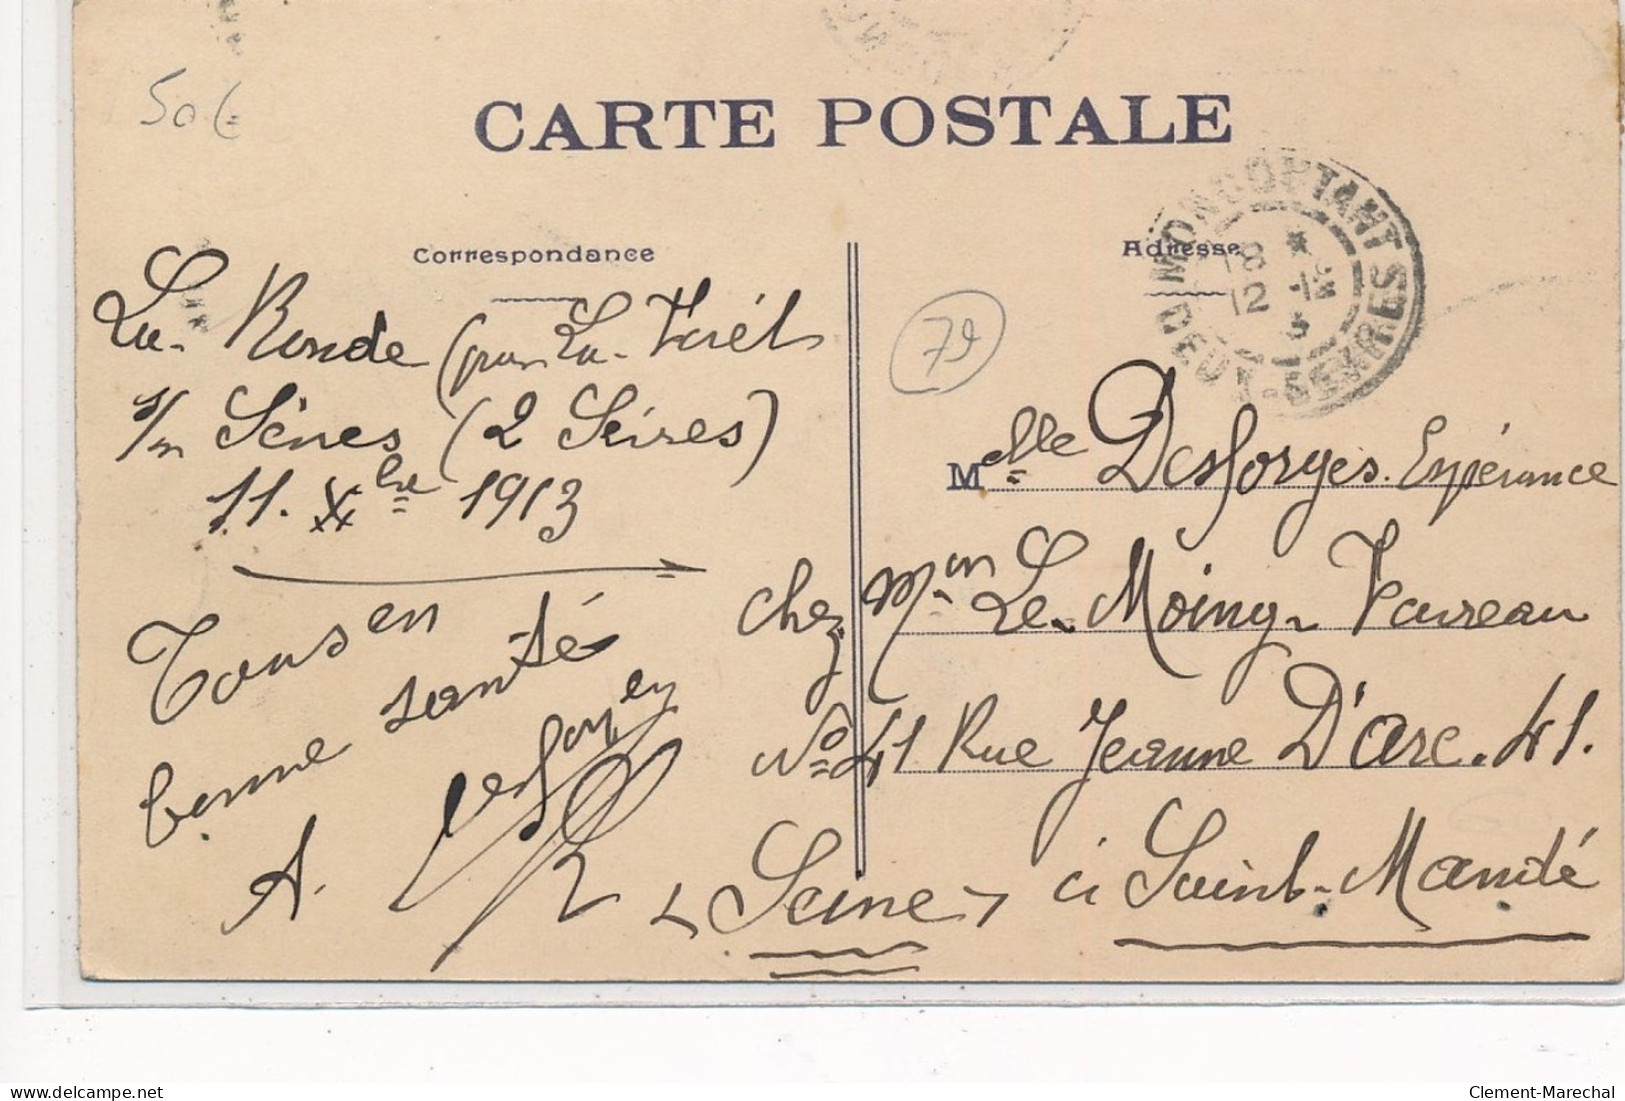 50€
CARTE POSTALE
Correspondance
Adresse
MONCOUTANT
DEUX-SEVRES
18 *
12 -12
La Ronde (par La Forêt
s/ Sèvres (2 Sèvres)
11. Xbre 1913
Tous en
bonne santé
A. Desforges
79
Melle Desforges Espérance
chez Mon Le Moing Taureau
No 41 Rue Jeanne D'arc. 41.
à Saint-Mandé
(Seine)
delcampe.net
Clement-Marechal